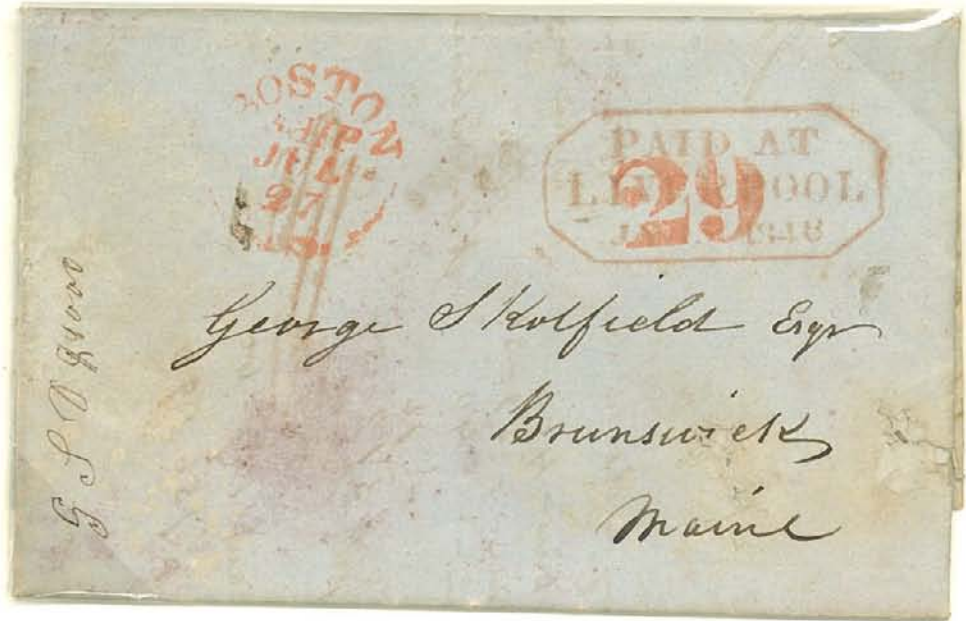 BOSTON
SHIP
JUL
27
PAID AT
LIVERPOOL
1848
29
George Skolfield Esqr
Brunswick
Maine